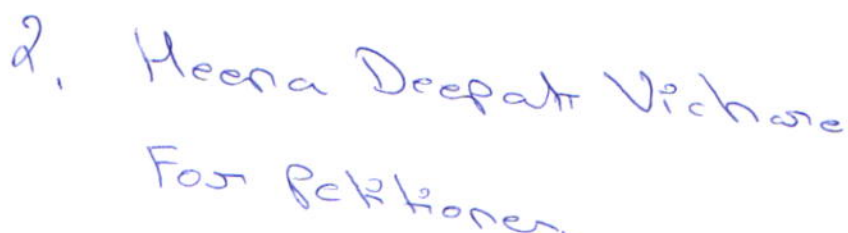 2. Heena Deepak Vichare
For Petitioner.